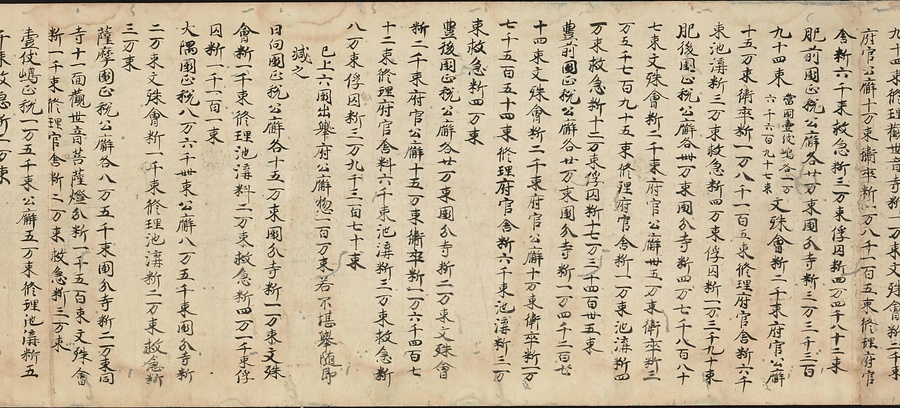 九十四束修理觀世音寺新一万束文殊會新二千束
府官公廨十万束衛卒新一万八千一百五束修理府官
舍新六千束救急新三万束俘囚新四万四千八十二束
肥前國正税公廨各廿万束國分寺新三万三千三百
九十四束 當國壹伎嶋各一万六千六百九十七束 文殊會新二千束府官公廨
十五万束衛卒新一万八千一百五束修理府官舍新六千
束池溝新三万束救急新四万束俘囚新一万三千九十束
肥後國正税公廨各卌万束國分寺新四万七千八百八十
七束文殊會新二千束府官公廨卅五万束衛卒新三
万五千七百九十五束修理府官舍新一万束池溝新四
万束救急新十二万束俘囚新十七万三千四百卅五束
豐前國正税公廨各廿万束國分寺新一万四千二百七
十四束文殊會新二千束府官公廨十万束衛卒新一万
七千五百五十四束修理府官舍新六千束池溝新三万
束救急新四万束
豐後國正税公廨各廿万束國分寺新二万束文殊會
新二千束府官公廨十五万束衛卒新一万六千四百七
十二束修理府官舍料六千束池溝新三万束救急新
八万束俘囚新三万九千三百七十束
已上六國出舉府公廨惣一百万束若不堪舉随即
減之
日向國正税公廨各十五万束國分寺新一万束文殊
會新一千束修理池溝料二万束救急新四万一千束俘
囚新一千一百一束
大隅國正税八万六千卌束公廨八万五千束國分寺新
二万束文殊會新一千束修理池溝新二万束救急新
三万束
薩摩國正税公廨各八万五千束國分寺新二万束同
寺十一面觀世音菩薩燈分新一千五百束文殊會
新一千束修理官舍新二万束救急新三万束
壹伎嶋正税一万五千束公廨五万束修理池溝新五
千束救急新二万束